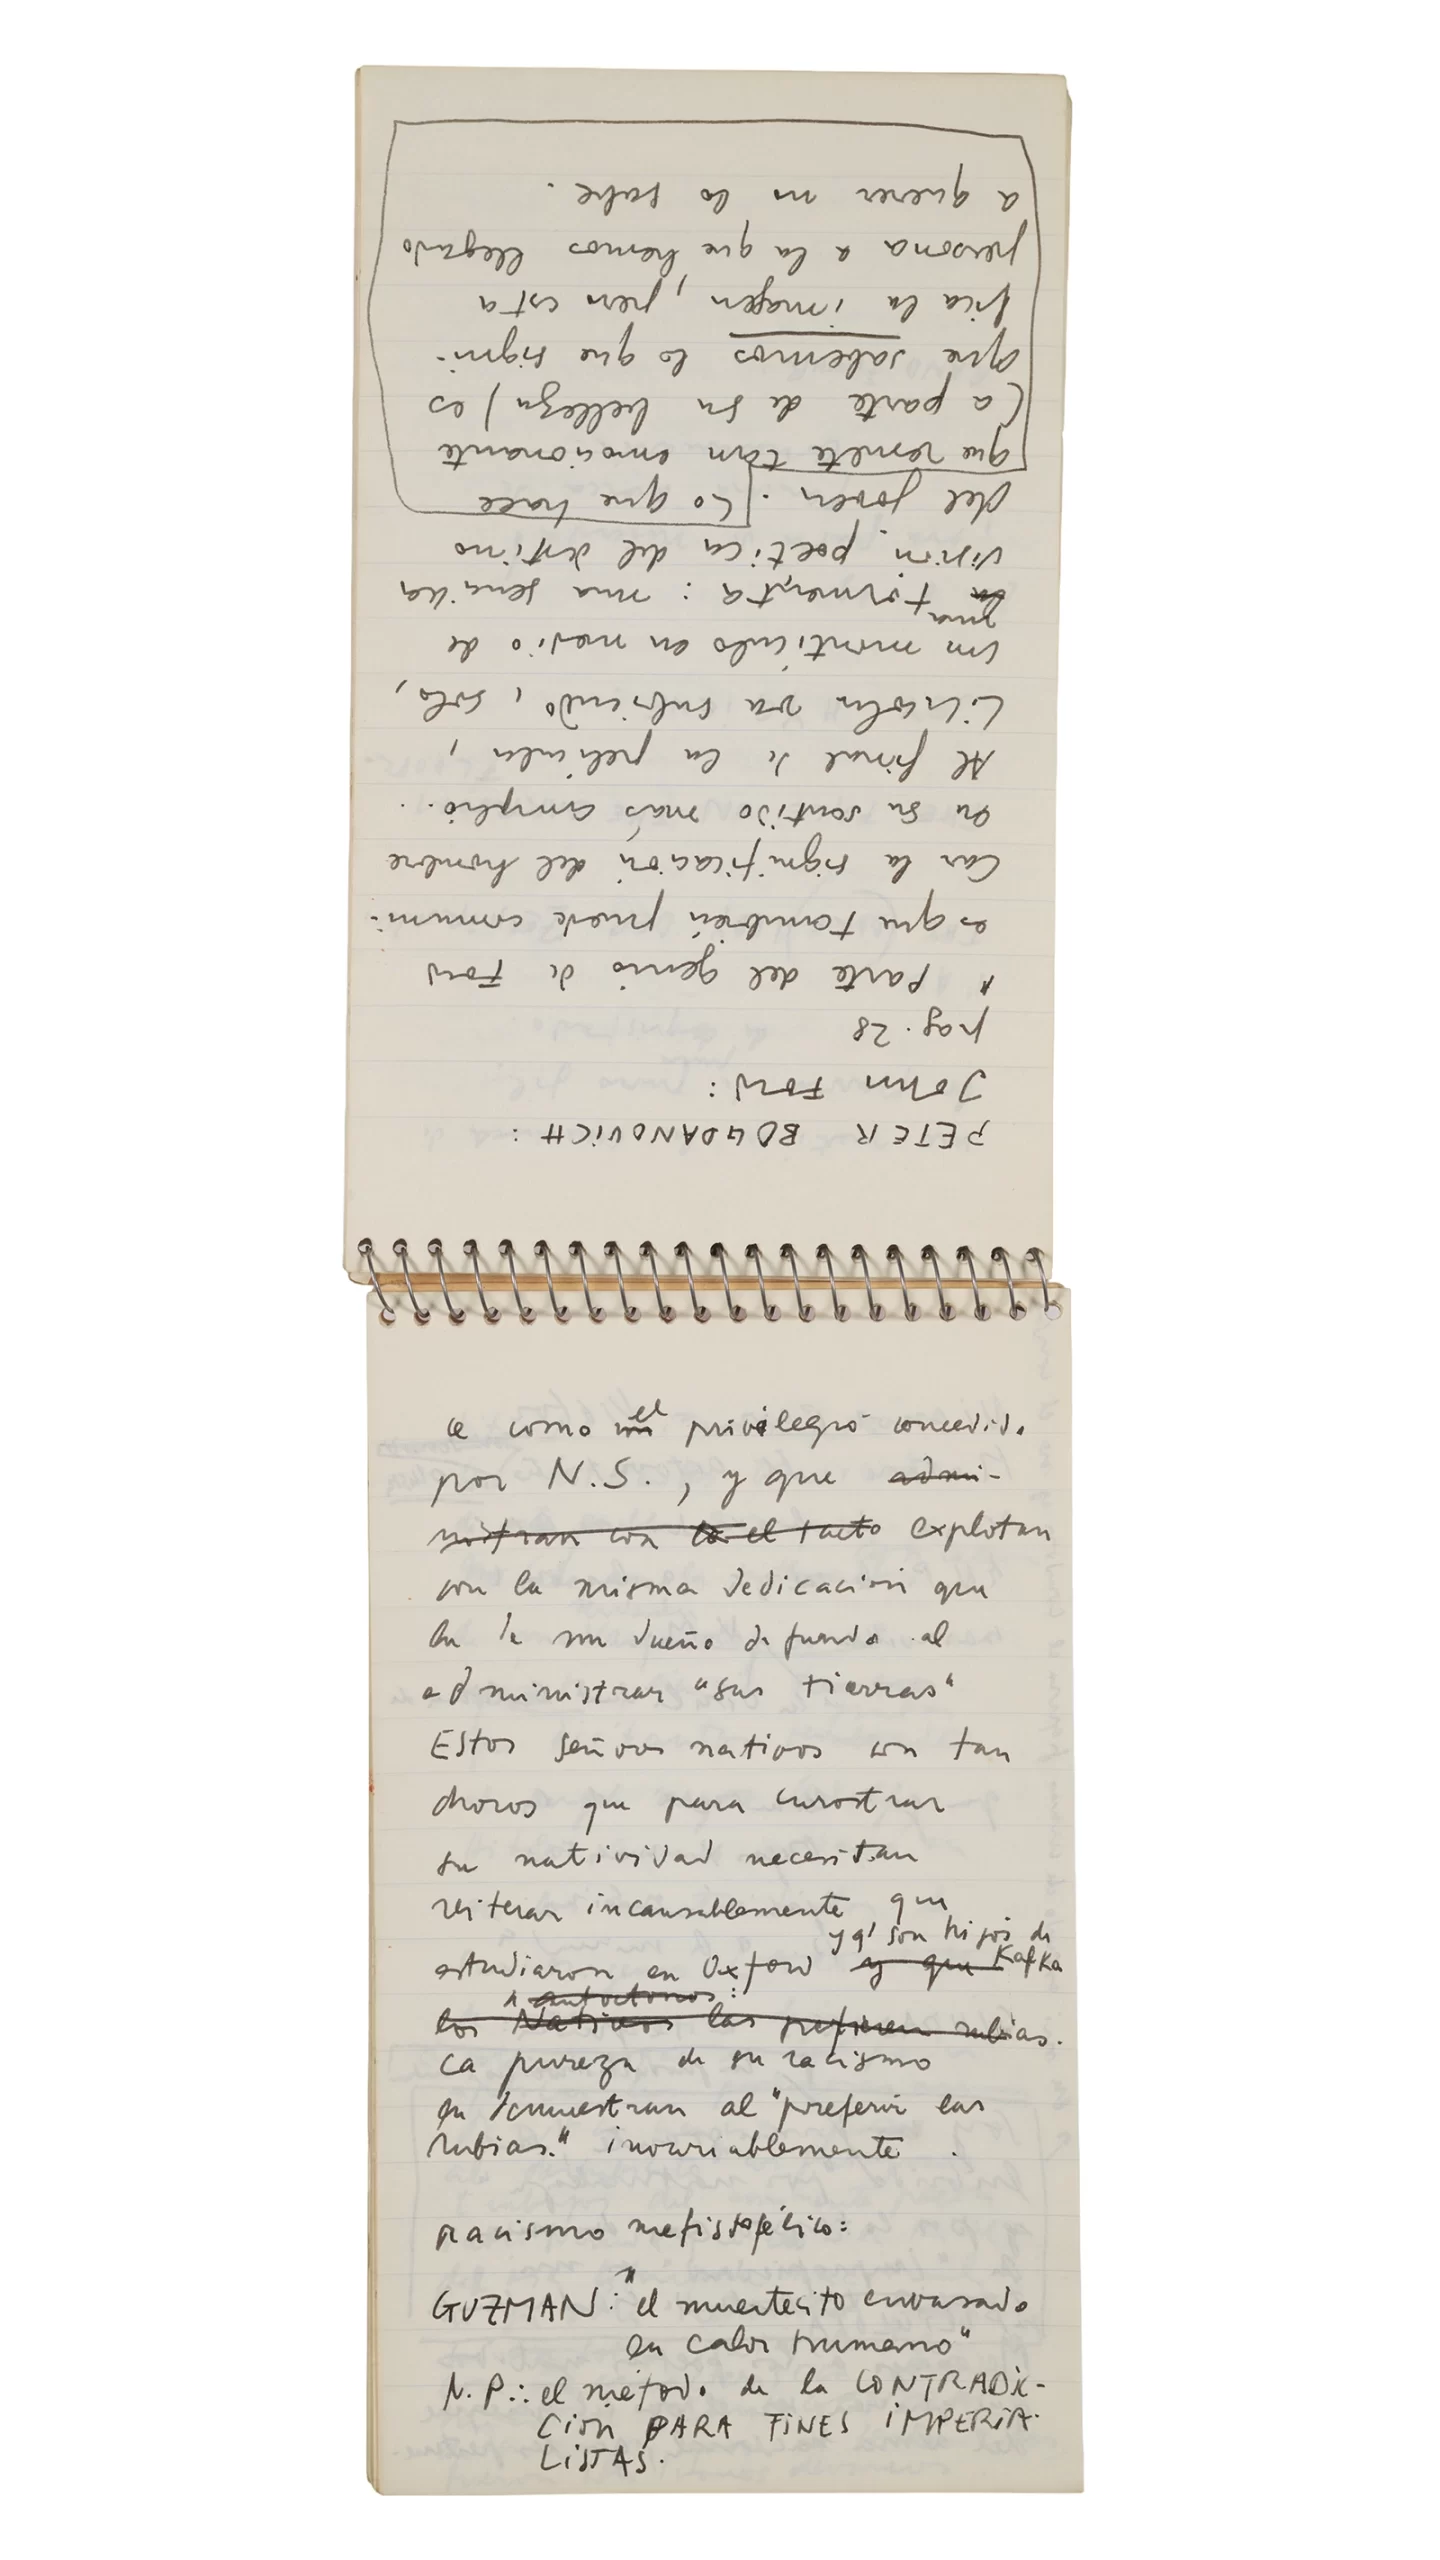 PETER BOGDANOVICH:
John Ford:
pag. 28
" Parte del genio de Ford
es que también puede comuni-
car la significación del hombre
en su sentido más amplio.
Al final de la película,
Lincoln va subiendo, solo,
un montículo en medio de
la una tormenta: una sencilla
visión poética del destino
del joven. Lo que hace
que resulte tan emocionante
(a parte de su belleza) es
que sabemos lo que signi-
fica la imagen, pero esta
persona a la que hemos llegado
a querer no lo sabe.
ce como un el privilegio concedido
por N.S., y que admi-
nistran con la el tacto explotan
con la misma dedicación que
la de un dueño de fundo al
administrar "sus tierras"
Estos señores nativos son tan
choros que para
su natividad necesitan
reiterar incansablemente que
y q' son hijos de
estudiaron en Oxford y que Kafka
" autoctonos:
los Nativos las prefieren rubias.
La pureza de su racismo
la demuestran al "preferir las
rubias." invariablemente.
racismo mefistofélico:
GUZMAN: "el muertecito envasado
en calor humano"
N.P.: el método de la CONTRADIC-
CION PARA FINES IMPERIA-
LISTAS.